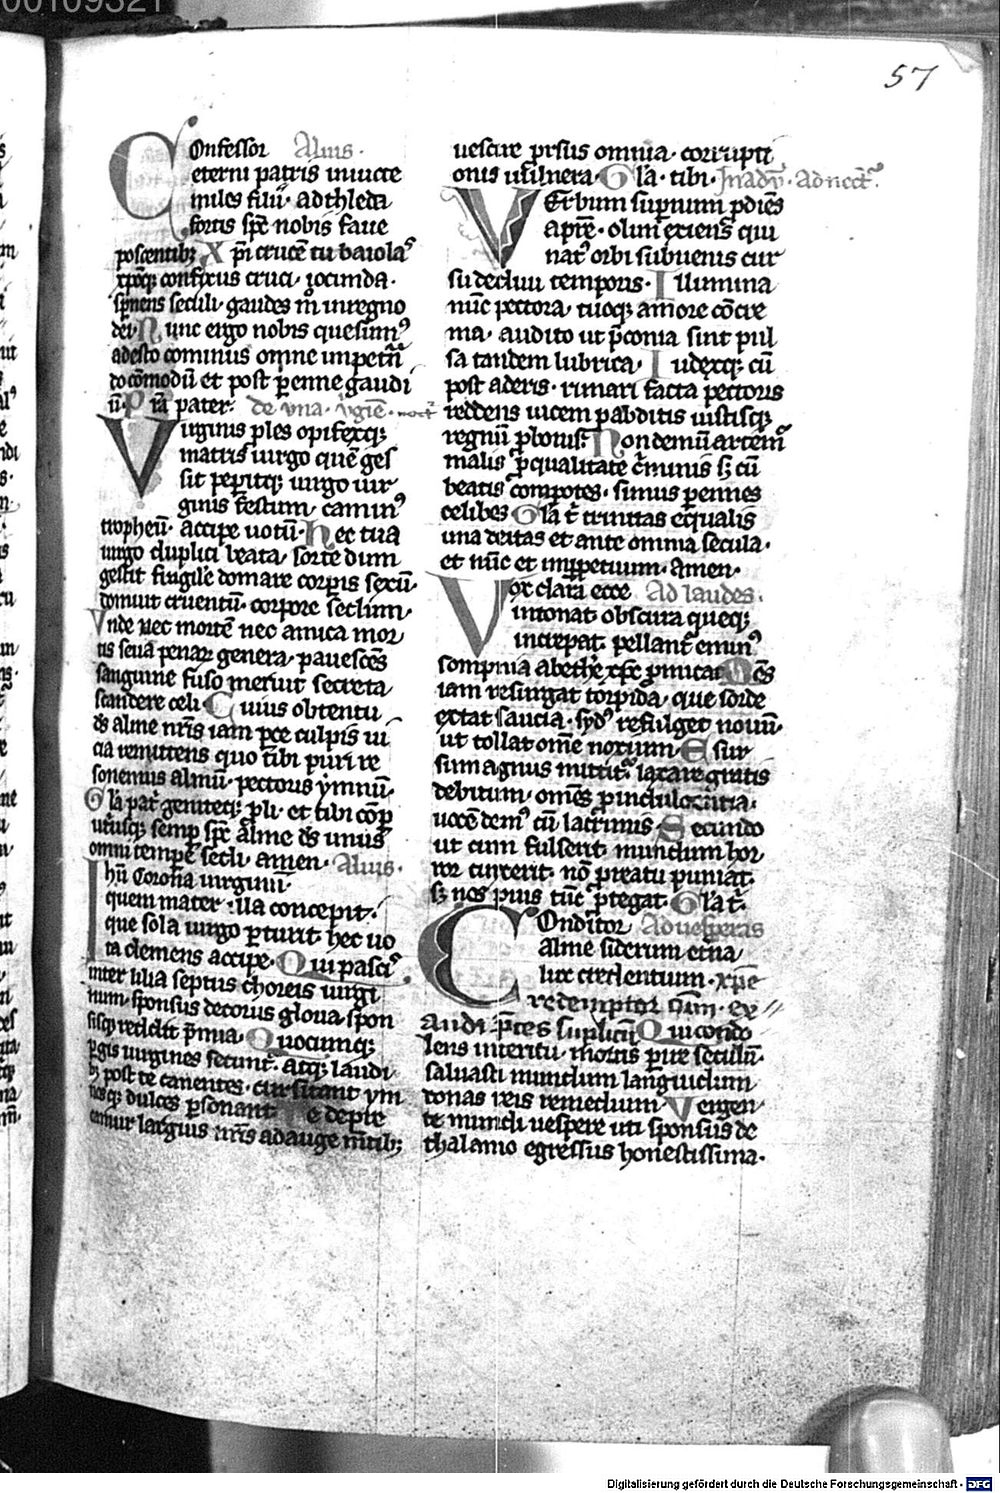 00109321
57
Confessor Alius.
eterni patris invicte
miles filii adthleta
fortis spe nobis fave
poscentibꝫ Xpi crucē tu baiolaꝰ
confixus cruci iocunda.
spnens seculi gaudes in regno
dei Nunc ergo nobis quesimꝰ
adesto cominus omne impetū
to cōmodū et post perenne gaudi
ū. P ꝛā pater. de vna vgīe. noctͬ
Virginis ples opifexqꝫ
matris virgo quē ges
sit pepitqꝫ virgo vir
ginis festum caminꝰ
tropheū. accipe votū. hec tua
virgo duplici beata sorte dum
gestit fragile domare corpis sexū
domuit cruentū. corpore seclum.
Vnde nec mortē nec amica mor
tis seua penaꝝ genera pauescēs
sanguine fuso meruit secreta
scandere celi Cuius obtentu
ds alme nrīs iam pce culpis vi
cia remittens quo tibi puri re
sonemus almū. pectoris ymnū.
Gla patͥ genitecqꝫ pli. et tibi cōp
utͥusqꝫ semp spc alme ds unus
omni tempe secli. amen. Alius.
Ihū Corona virginū
quem mater illa concepit.
que sola virgo pturit hec vo
ta clemens accipe. Qui pasciꝰ
inter lilia septus choreis virgi
num. sponsus decorus gloria spon
sisqꝫ reddit pmia. Quocumqꝫ
pgis virgines secunt. atqꝫ laudi
bꝫ post te canentes. cursitant ym
nosqꝫ dulces psonant Te depte
emur largius nrīs adauge mtibꝫ
nescire prsus omnia. corrupti
onis uulnera. Gla. tibi. In adv. ad noctͬ.
Verbum supnum pdiēs
a pre. olim exiens qui
natꝰ orbi subuenis cur
su decliui temporis. Illumina
nūc pectora tuoqꝫ amore cōcre
ma. audito ut pconia sint pul
sa tandem lubrica. Iudexqꝫ cū
post aderis. rimari facta pectoris
reddens vicem p abditis iustisqꝫ
regnū p bonis. Non demū artemꝰ
malis p qualitate crīminis sꝫ cū
beatis compotes. simus pennes
celibes Gla t trinitas equalis
una deitas et ante omnia secula.
et nūc et impetuum. Amen.
Vox clara ecce Ad laudes.
intonat obscura queqꝫ
increpat. pellantͬ eminꝰ
sompnia ab ethe xpc pmicat Mēs
iam resurgat torpida. que sorde
extat saucia. sydꝰ refulget nouū.
ut tollat ome noxium E sur
sum agnus mittitͬ laxare gratis
debitum. omēs p indulgentia.
uocē demꝰ cū lacrimis Secundo
ut cum fulserit mundum hor
ror cinxerit. nō p reatu puniat.
sꝫ nos pius tūc ptegat. Gla t.
Conditor Ad uesperas
alme siderum etna
lux credentium. xpē
redemptor oīm. ex
audi pces suplicū Qui condo
lens interitu. mortis pire seculū
saluasti mundum languidum
donas reis remedium Vergen
te mundi vespere uti sponsus de
thalamo egressus honestissima.
Digitalisierung gefördert durch die Deutsche Forschungsgemeinschaft - DFG